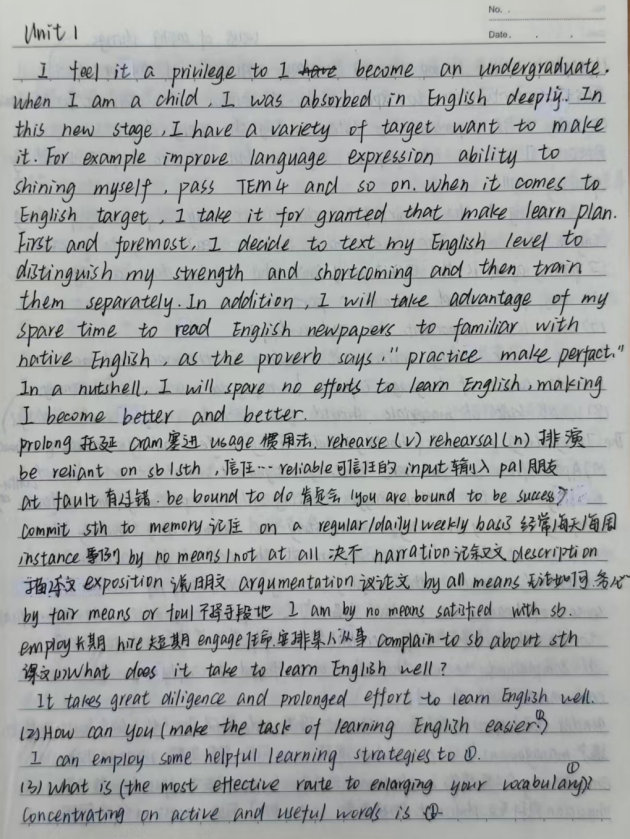 No.
Date.
Unit 1
I feel it a privilege to I have become an undergraduate.
when I am a child, I was absorbed in English deeply. In
this new stage, I have a variety of target want to make
it. For example improve language expression ability to
shining myself, pass TEM4 and so on. When it comes to
English target, I take it for granted that make learn plan.
First and foremost, I decide to text my English level to
distinguish my strength and shortcoming and then train
them separately. In addition, I will take advantage of my
spare time to read English newpapers to familiar with
native English, as the proverb says, "practice make perfact."
In a nutshell, I will spare no efforts to learn English, making
I become better and better.
prolong 托延 cram 塞进 usage 惯用法, rehearse (v) rehearsal (n) 排演
be reliant on sb/sth, 信任… reliable 可信任的 input 输入 pal 朋友
at fault 有过错. be bound to do 肯定会 (you are bound to be succes)
commit sth to memory 记住 on a regular/daily/weekly basis 经常/每天/每周
instance 事例 by no means/not at all 决不 narration 记叙文 description
描述文 exposition 说明文 argumentation 议论文 by all means 无论如何,务必
by fair means or foul 不择手段地 I am by no means satisfied with sb.
employ 长期 hire 短期 engage 任命,安排某人从事 complain to sb about sth
课文 (1) What does it take to learn English well?
It takes great diligence and prolonged effort to learn English well.
(2) How can you (make the task of learning English easier?)①
I can employ some helpful learning strategies to ①.
(3) What is (the most effective route to enlarging your vocabulary)①?
Concentrating on active and useful words is ①